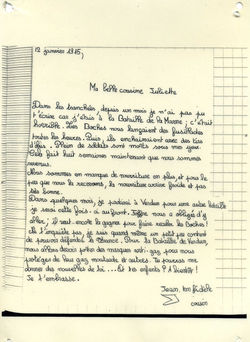 12 janvier 1915,
Ma belle cousine Juliette
Dans les tranchées, depuis un mois je n'ai pas pu
t'écrire car j'étais à la Bataille de la Marne ; c'était
horrible. Les Boches nous lançaient des fusillades
toutes les heures. Puis ils enchaînaient avec des tirs
d'obus. Pleins de soldats sont morts sous mes yeux.
Cela fait huit semaines maintenant que nous sommes
revenus.
Nous sommes en manque de nourriture en plus, et pour le
peu que nous la recevons, la nourriture arrive froide et pas
très bonne.
Dans quelques mois, je partirai à Verdun pour une autre bataille
je serai cette fois-ci au front. Joffre nous a obligés d'y
aller, il veut encore la gagner pour faire reculer les Boches !
Ne t'inquiète pas, je suis quand même un petit peu content
de pouvoir défendre la France. Pour la Bataille de Verdun,
nous allons devoir porter des masques anti-gaz pour nous
protéger de leur gaz moutarde et autres. Tu pourras me
donner des nouvelles de toi... Et tes enfants ? A bientôt !
Je t'embrasse.
Jean, ton fidèle
cousin